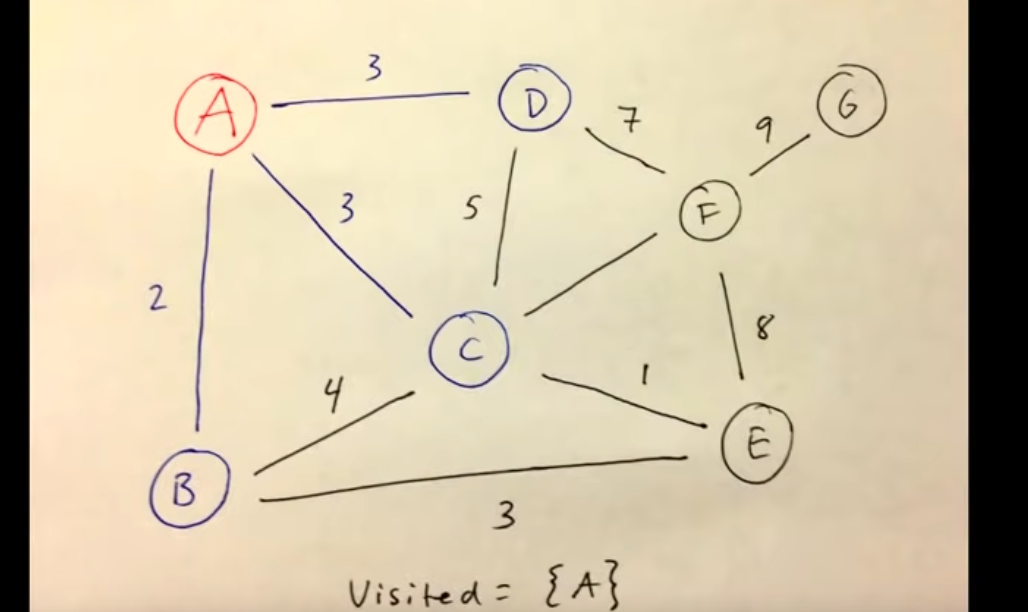 3
A
D
7
9
G
3
5
F
2
C
8
4
1
B
E
3
Visited = {A}